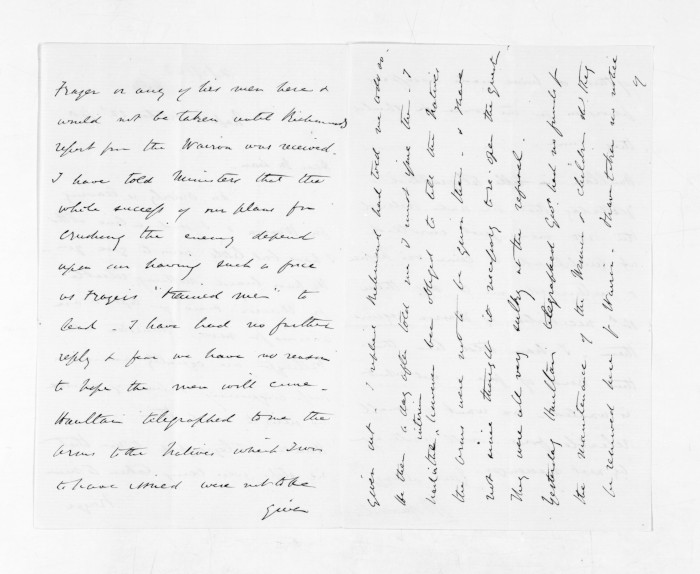 Frazer or any of his men here &
would not be taken until Richmonds
report from the Wairoa was received.
I have told Ministers that the
whole success of our plans for
crushing the enemy depend
upon our having such a force
as Frazers "trained men" to
lead. I have had no further
reply & fear we have no reason
to hope the men will come.
Haultain telegraphed to me the
arms to the Natives which I was
to have issued were not to be
given
given out. I replied Richmond had told me to do so.
He then a day after told me I must give them. I
had interim
however been obliged to tell the Natives
the arms were not to be given them. & have
not since thought it necessary to re open the question
They were all very sulky at the refusal.
Yesterday Haultain telegraphed Govt had no funds for
the maintenance of the Women & children shd they
be removed here fr Wairoa. I have taken no notice